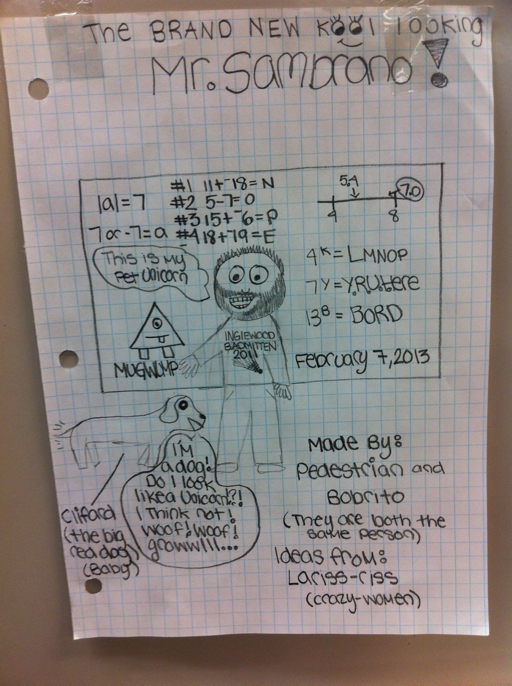 The BRAND NEW Kool looking
Mr. Sambrano!
|a|=7
7 or -7=a
#1 11+⁻18= N
#2 5-7=O
#3 15+⁻6=P
#4 18+79=E
5.4
7.0
4
8
This is my
Pet Unicorn
4ᴷ= LMNOP
7ʸ=Y.R.U.Here
13ᴮ = BORD
INGLEWOOD
BADMITTEN
2011
MUGWUMP
February 7, 2013
I'M
a dog!
Do I look
like a Unicorn?!
I think not!
woof! woof!
growwlll...
Cliford
(the big
red dog)
(Baby)
Made By:
Pedestrian and
Bobrito
(They are both the
same person)
Ideas from:
Lariss-riss
(crazy-women)